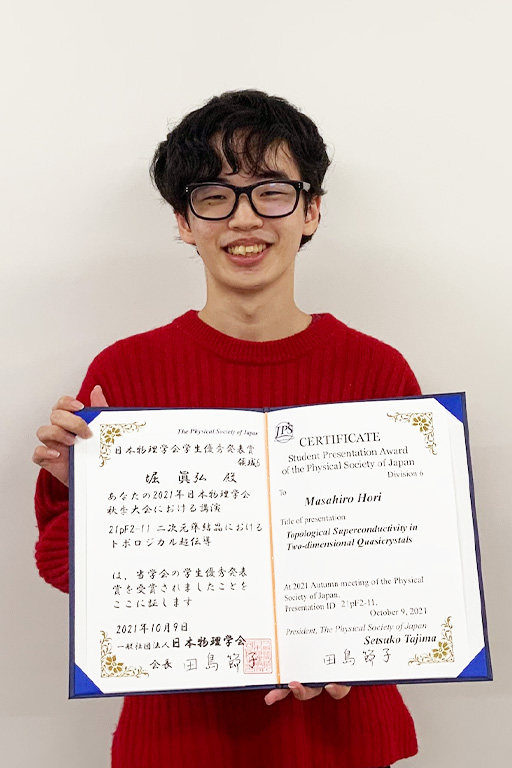 The Physical Society of Japan
日本物理学会学生優秀発表賞
領域6
堀 眞弘 殿
あなたの2021年日本物理学会
秋季大会における講演
21pF2-11 二次元準結晶における
トポロジカル超伝導
は、当学会の学生優秀発表
賞を受賞されましたことを
ここに証します
2021年10月9日
一般社団法人日本物理学会
会長 田島節子
JPS
CERTIFICATE
Student Presentation Award
of the Physical Society of Japan
Division 6
To
Masahiro Hori
Title of presentation
Topological Superconductivity in
Two-dimensional Quasicrystals
At 2021 Autumn meeting of the Physical
Society of Japan.
Presentation ID 21pF2-11,
October 9, 2021
President, The Physical Society of Japan
Setsuko Tajima
田島節子